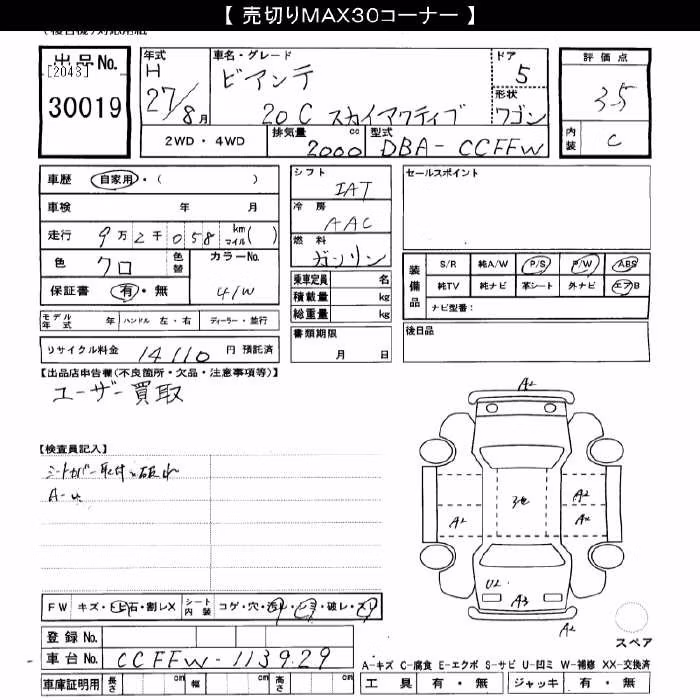 【 売切りMAX30コーナー 】
出品No.
[2043]
30019
年式
H
27/8月
車名・グレード
ビアンテ
20C スカイアクティブ
ドア
5
形状
ワゴン
評価点
3.5
内装
C
2WD・4WD
排気量
2000
cc
型式
DBA-CCFFW
車歴 自家用・( )
車検 年 月
走行 9万2千058 km マイル( )
色 クロ 色替 カラーNo.
41W
保証書 有・無
モデル年式 年 ハンドル 左・右 ディーラー・並行
リサイクル料金 14110 円 預託済
シフト
IAT
冷房
AAC
燃料
ガソリン
乗車定員 名
積載量 kg
総重量 kg
書類期限
月 日
セールスポイント
装備品
S/R 純A/W P/S P/W ABS
純TV 純ナビ 革シート 外ナビ エアB
ナビ型番:
後日品
【出品店申告欄(不良箇所・欠品・注意事項等)】
ユーザー買取
【検査員記入】
シートカバー取付
FW キズ・飛石・割レX シート内装 コゲ・穴・汚レ・シミ・破レ・スレ
登録No.
車台No. CCFFW-113929
車庫証明用 長さ cm 幅 cm 高さ cm
A2
A2
A2
A2
U2
A3
A2
スペア
A-キズ C-腐食 E-エクボ S-サビ U-凹ミ W-補修 XX-交換済
工具 有・無 ジャッキ 有・無